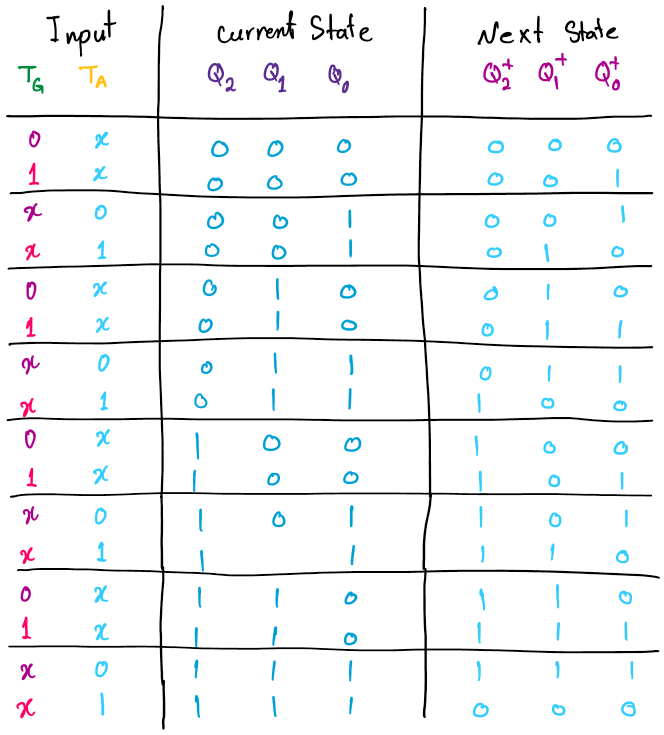 Input Current State Next State
T_G T_A Q_2 Q_1 Q_0 Q_2^+ Q_1^+ Q_0^+
0 x 0 0 0 0 0 0
1 x 0 0 0 0 0 1
x 0 0 0 1 0 0 1
x 1 0 0 1 0 1 0
0 x 0 1 0 0 1 0
1 x 0 1 0 0 1 1
x 0 0 1 1 0 1 1
x 1 0 1 1 1 0 0
0 x 1 0 0 1 0 0
1 x 1 0 0 1 0 1
x 0 1 0 1 1 0 1
x 1 1 1 1 1 0
0 x 1 1 0 1 1 0
1 x 1 1 0 1 1 1
x 0 1 1 1 1 1 1
x 1 1 1 1 0 0 0